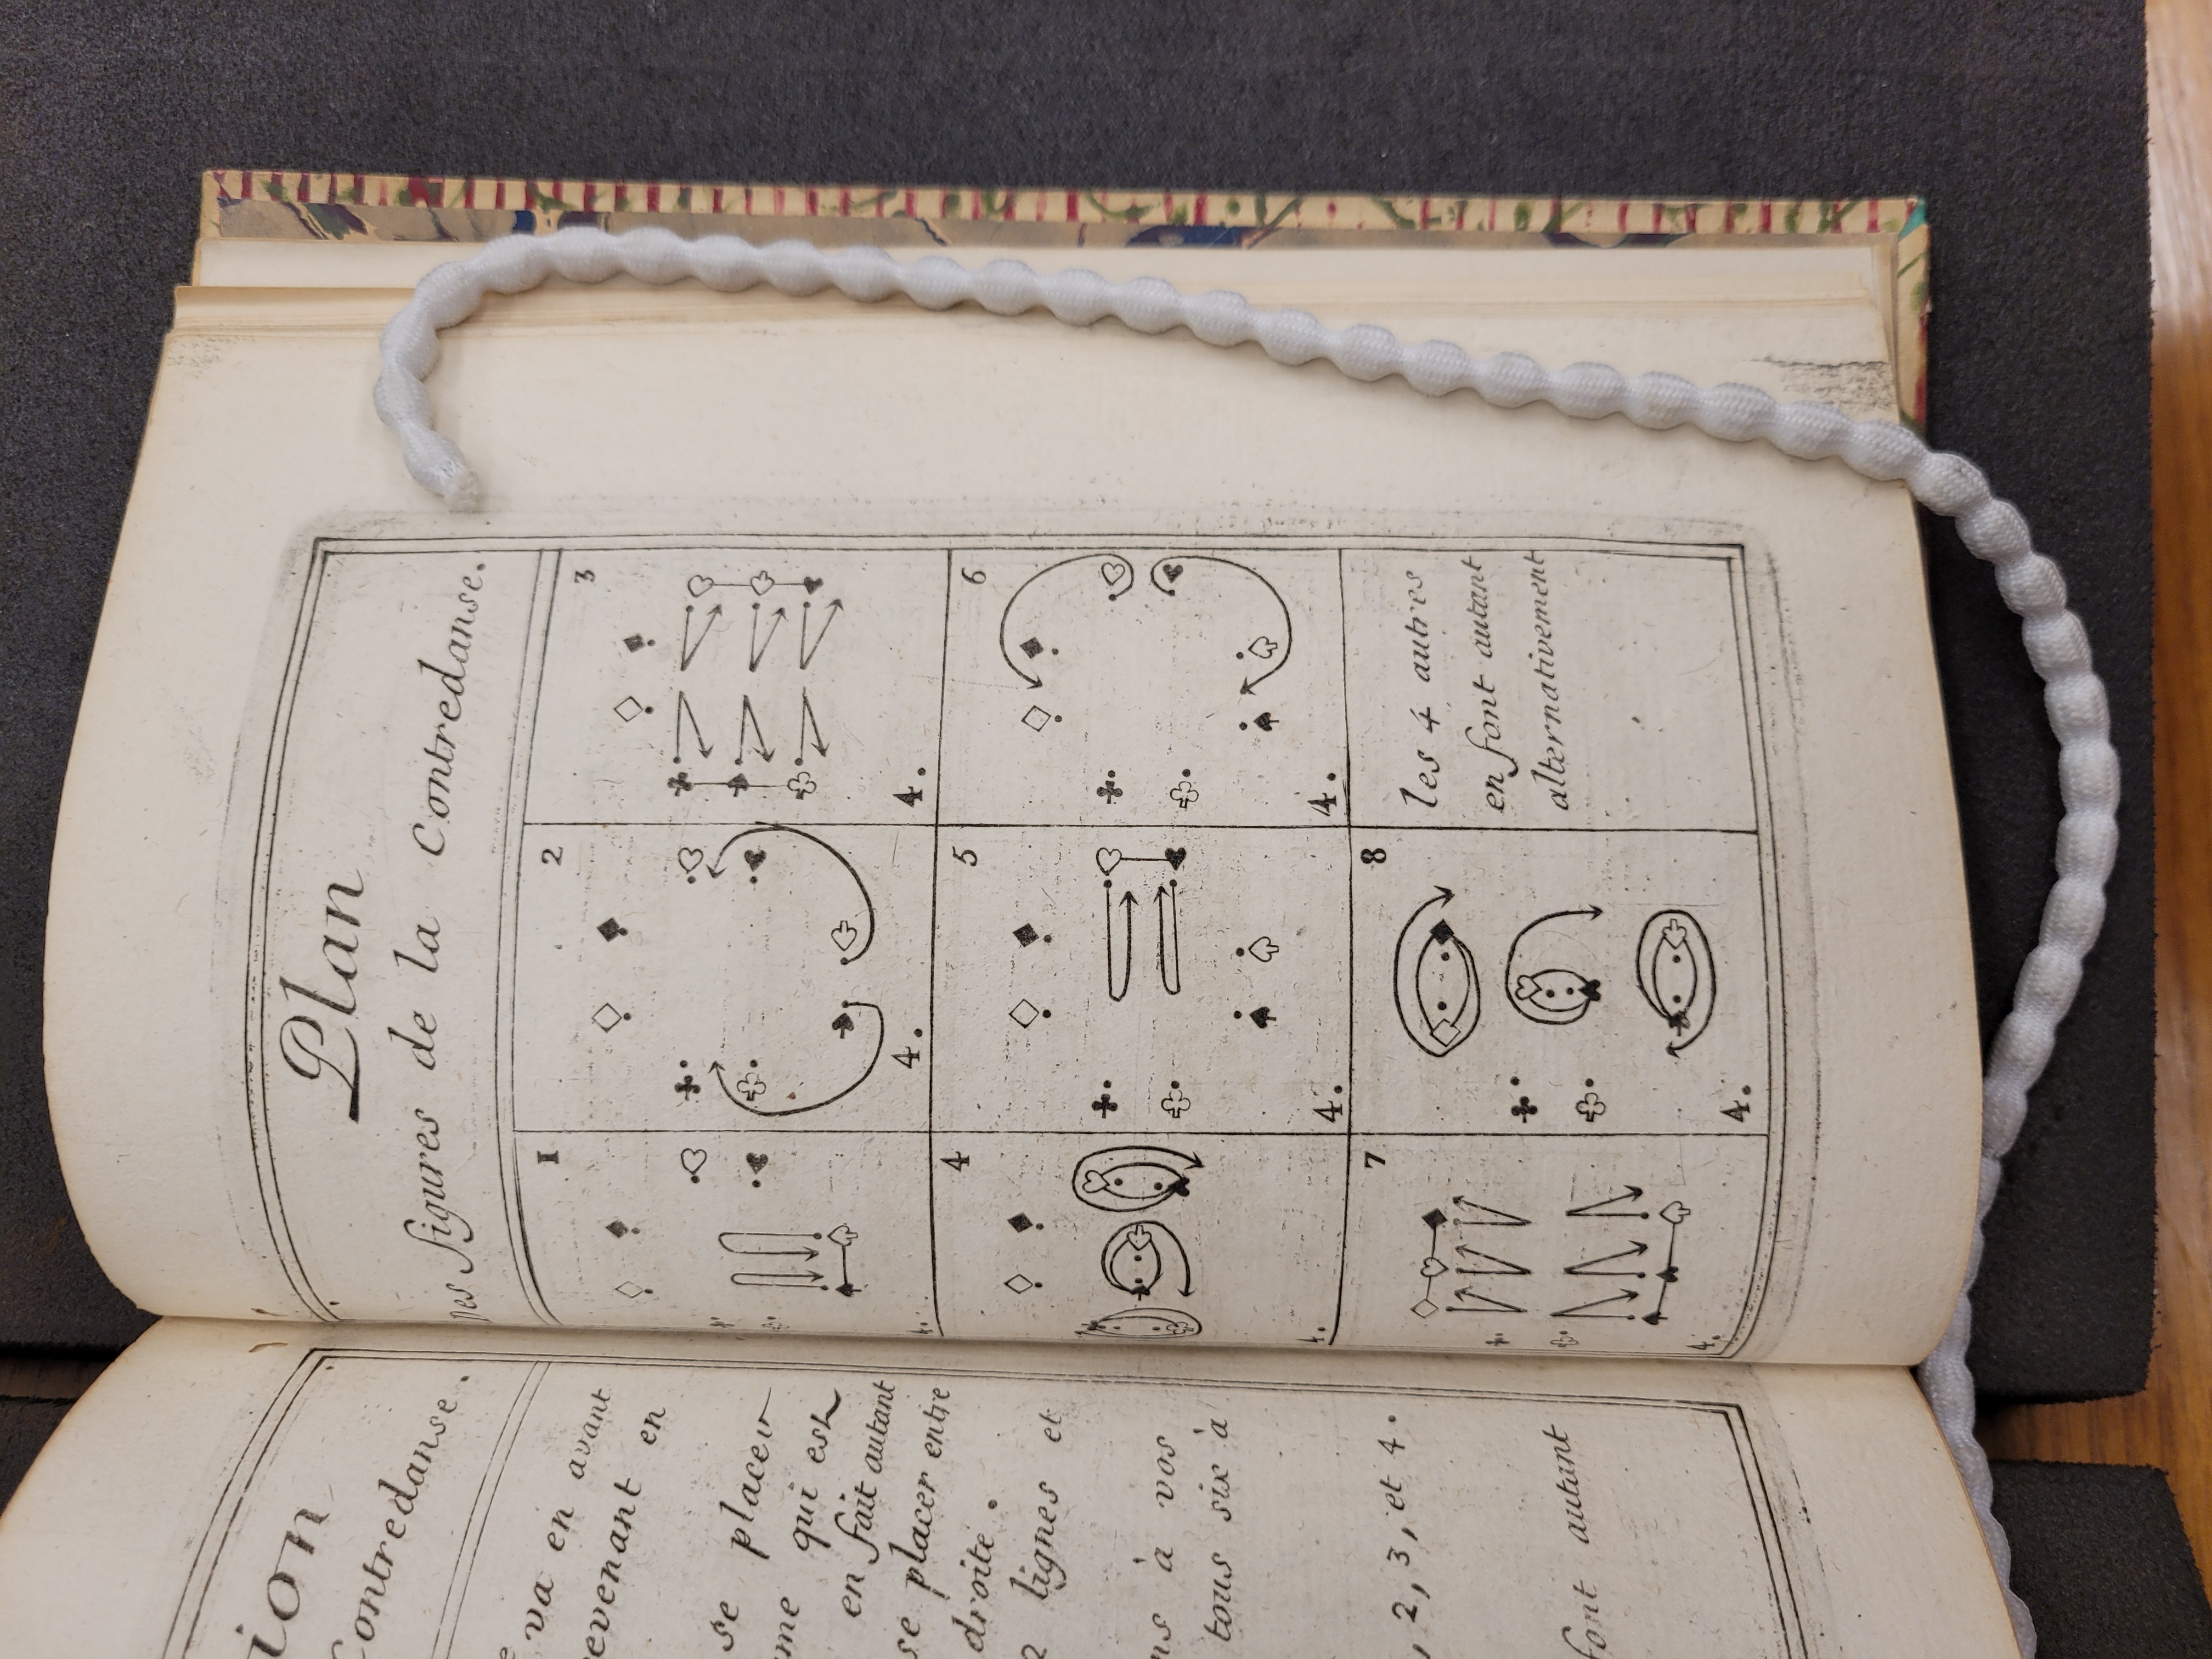 Plan
Des figures de la Contredanse.
1
4.
2
4.
3
4.
4
4.
5
4.
6
4.
7
4.
8
4.
les 4 autres
en font autant
alternativement
Contredanse.
va en avant
revenant en
se placer
qui est
en fait autant
se placer entre
droite.
lignes et
à vos
tous six à
2, 3, et 4.
font autant